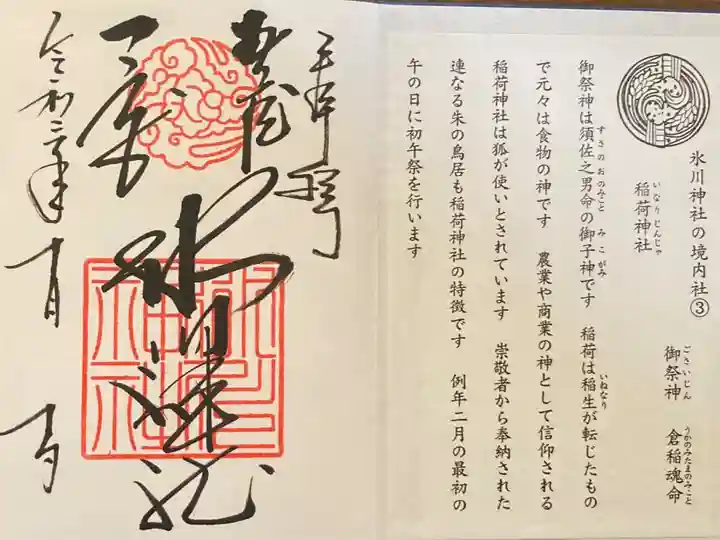 氷川神社の境内社③
稲荷神社
いなりじんじゃ
御祭神 倉稲魂命
ごさいじん うかのみたまのみこと
御祭神は須佐之男命の御子神です 稲荷は稲生が転じたもの
すさのおのみこと みこがみ いねなり
で元々は食物の神です 農業や商業の神として信仰される
稲荷神社は狐が使いとされています 崇敬者から奉納された
連なる朱の鳥居も稲荷神社の特徴です 例年二月の最初の
午の日に初午祭を行います
奉拝
武蔵
一宮
氷川神社
氷川神社
令和二年
十一月